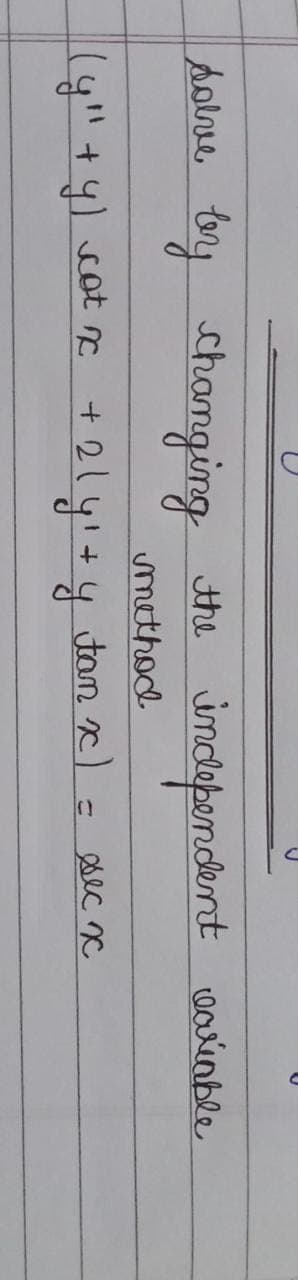 Solve by changing the independent variable
method
(y'' + y) cot x + 2(y' + y tan x) = sec x